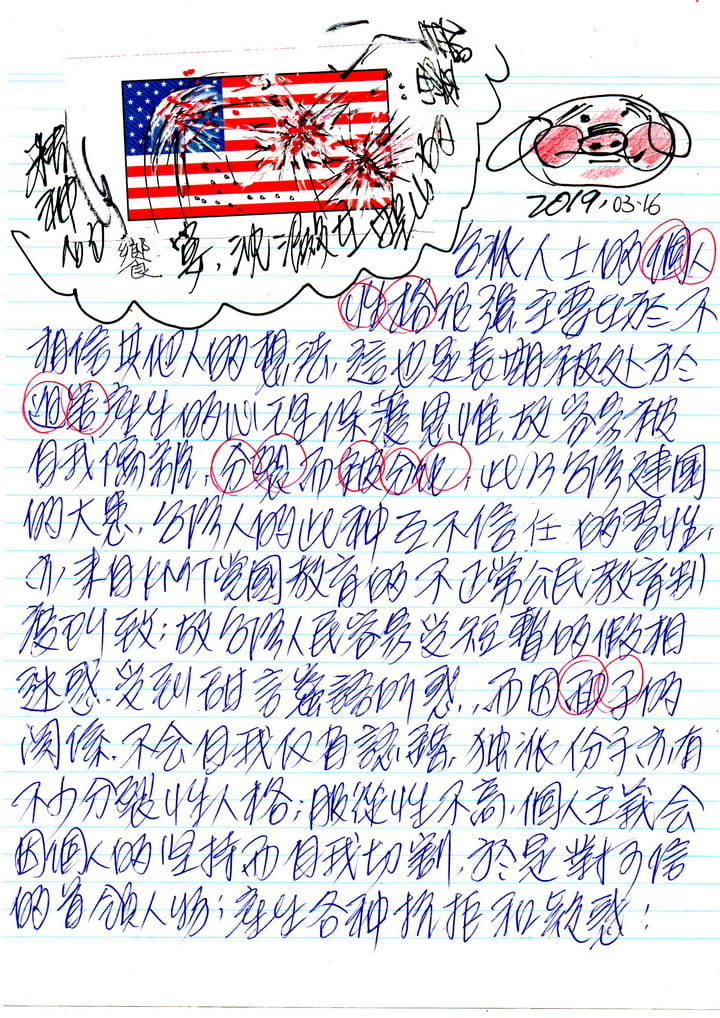 精神的饗宴,沈溺
2019,03-16
台派人士的個人
性格很強,主要在於不
相信其他人的想法,這也是長期被处於
迫害產生的心理保護思惟,故容易被
自我隔離,分裂而被分化;此乃台灣建國
的大患,台灣人的此种互不信任的習性,
亦來自KMT党國教育的不正常公民教育制
度所致;故台灣人民容易受短暫的假相
迷惑,受到甜言蜜語所惑,而因面子的
関係,不会自我 認錯,独派份子亦有
不少分裂性人格;服從性不高,個人主義会
因個人的坚持而自我切割,於是對可信
的首領人物;產生各种抗拒和疑惑!